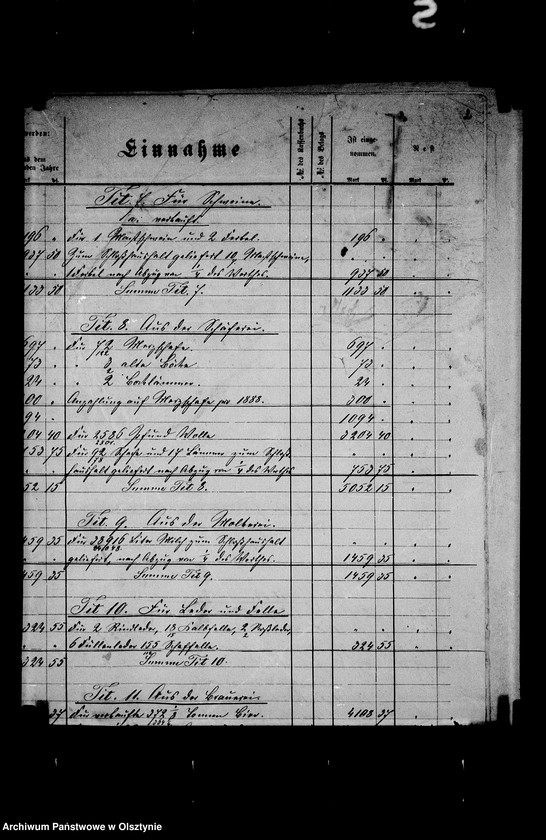 S
werden:
aus dem
hen Jahre
Pf.
Einnahme
№ des Kassenbuchs
№ des Belags
Ist einge-
nommen.
Mark Pf.
Rest
Mark P.
Tit. 7. Für Schweine.
a. verkauft.
196 " Für 1 Mastschwein und 2 Ferkel. 196 "
937 50 Zum Schloßhaushalt geliefert 10 Mastschweine,
Ferkel nach Abzug von 1/4 des Werthes. 937 50
1133 50 Summe Tit. 7. 1133 50
Tit. 8. Aus der Schäferei.
697 " Für 72 Merzschafe. 697 "
73 " " 3 alte Böcke 73 "
24 " " 2 Bocklämmer. 24 "
300 " Anzahlung auf Merzschafe pro 1888. 300 "
94 " 1094 "
204 40 Für 2586 Pfund Wolle 3204 40
153 75 Für 92 Schafe und 17 Lämmer zum Schloß-
haushalt geliefert nach Abzug von 1/4 des Werthes 753 75
52 15 Summe Tit 8. 5052 15
Tit. 9. Aus der Molkerei.
459 35 Für 38916 Liter Milch zum Schloßhaushalt
geliefert, nach Abzug von 1/4 des Werthes. 1459 35
459 35 Summe Tit 9. 1459 35
Tit 10. Für Leder und Felle
324 55 Für 2 Rindleder, 13 Kalbfelle, 2 Roßleder,
6 Füllenleder 155 Schaffelle. 324 55
324 55 Summe Tit 10.
Tit. 11. Aus der Brauerei
37 Für verkaufte 372 1/8 Tonnen Bier. 4108 37
Archiwum Państwowe w Olsztynie